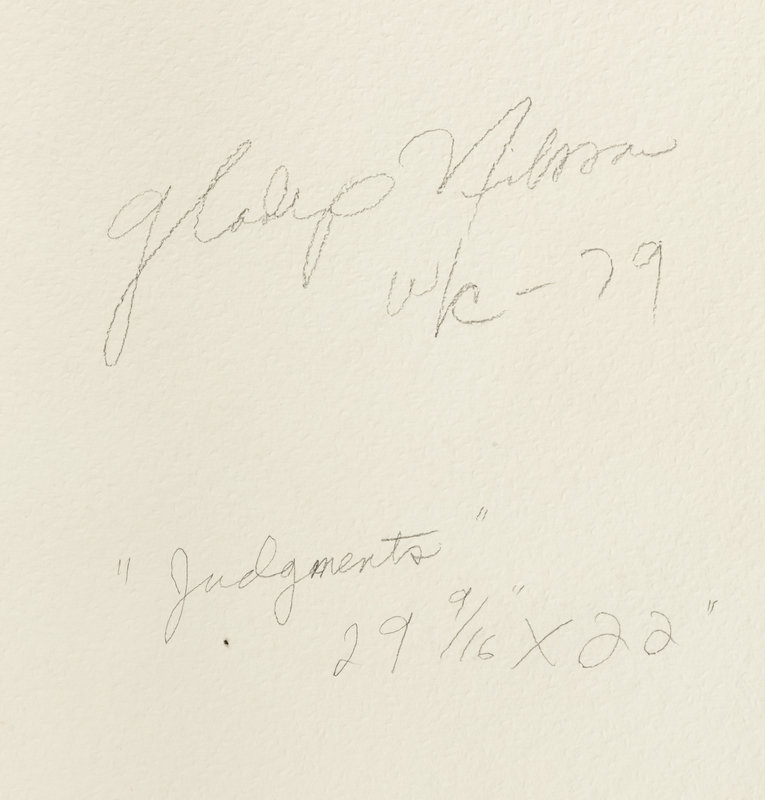 Gladys Nilsson
w/c - 79
"Judgments"
29 9/16" X 22"